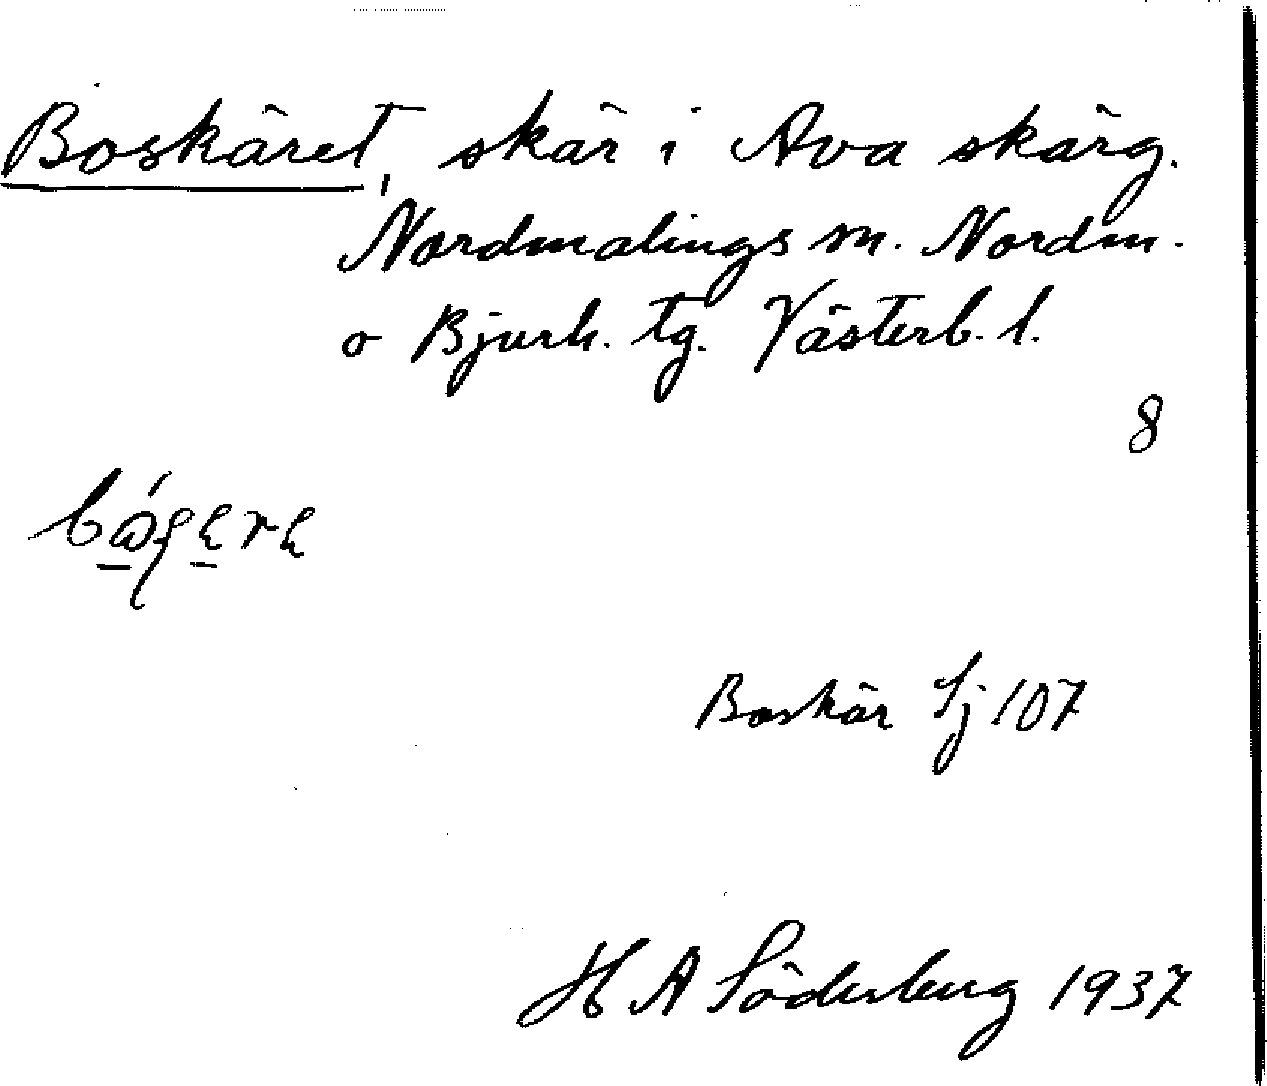 Boskäret, skär i Ava skärg.
Nordmalings sn. Nordm.
o Bjurh. tg. Västerb. l.
8
Boskär Sj 107
H A Söderberg 1937